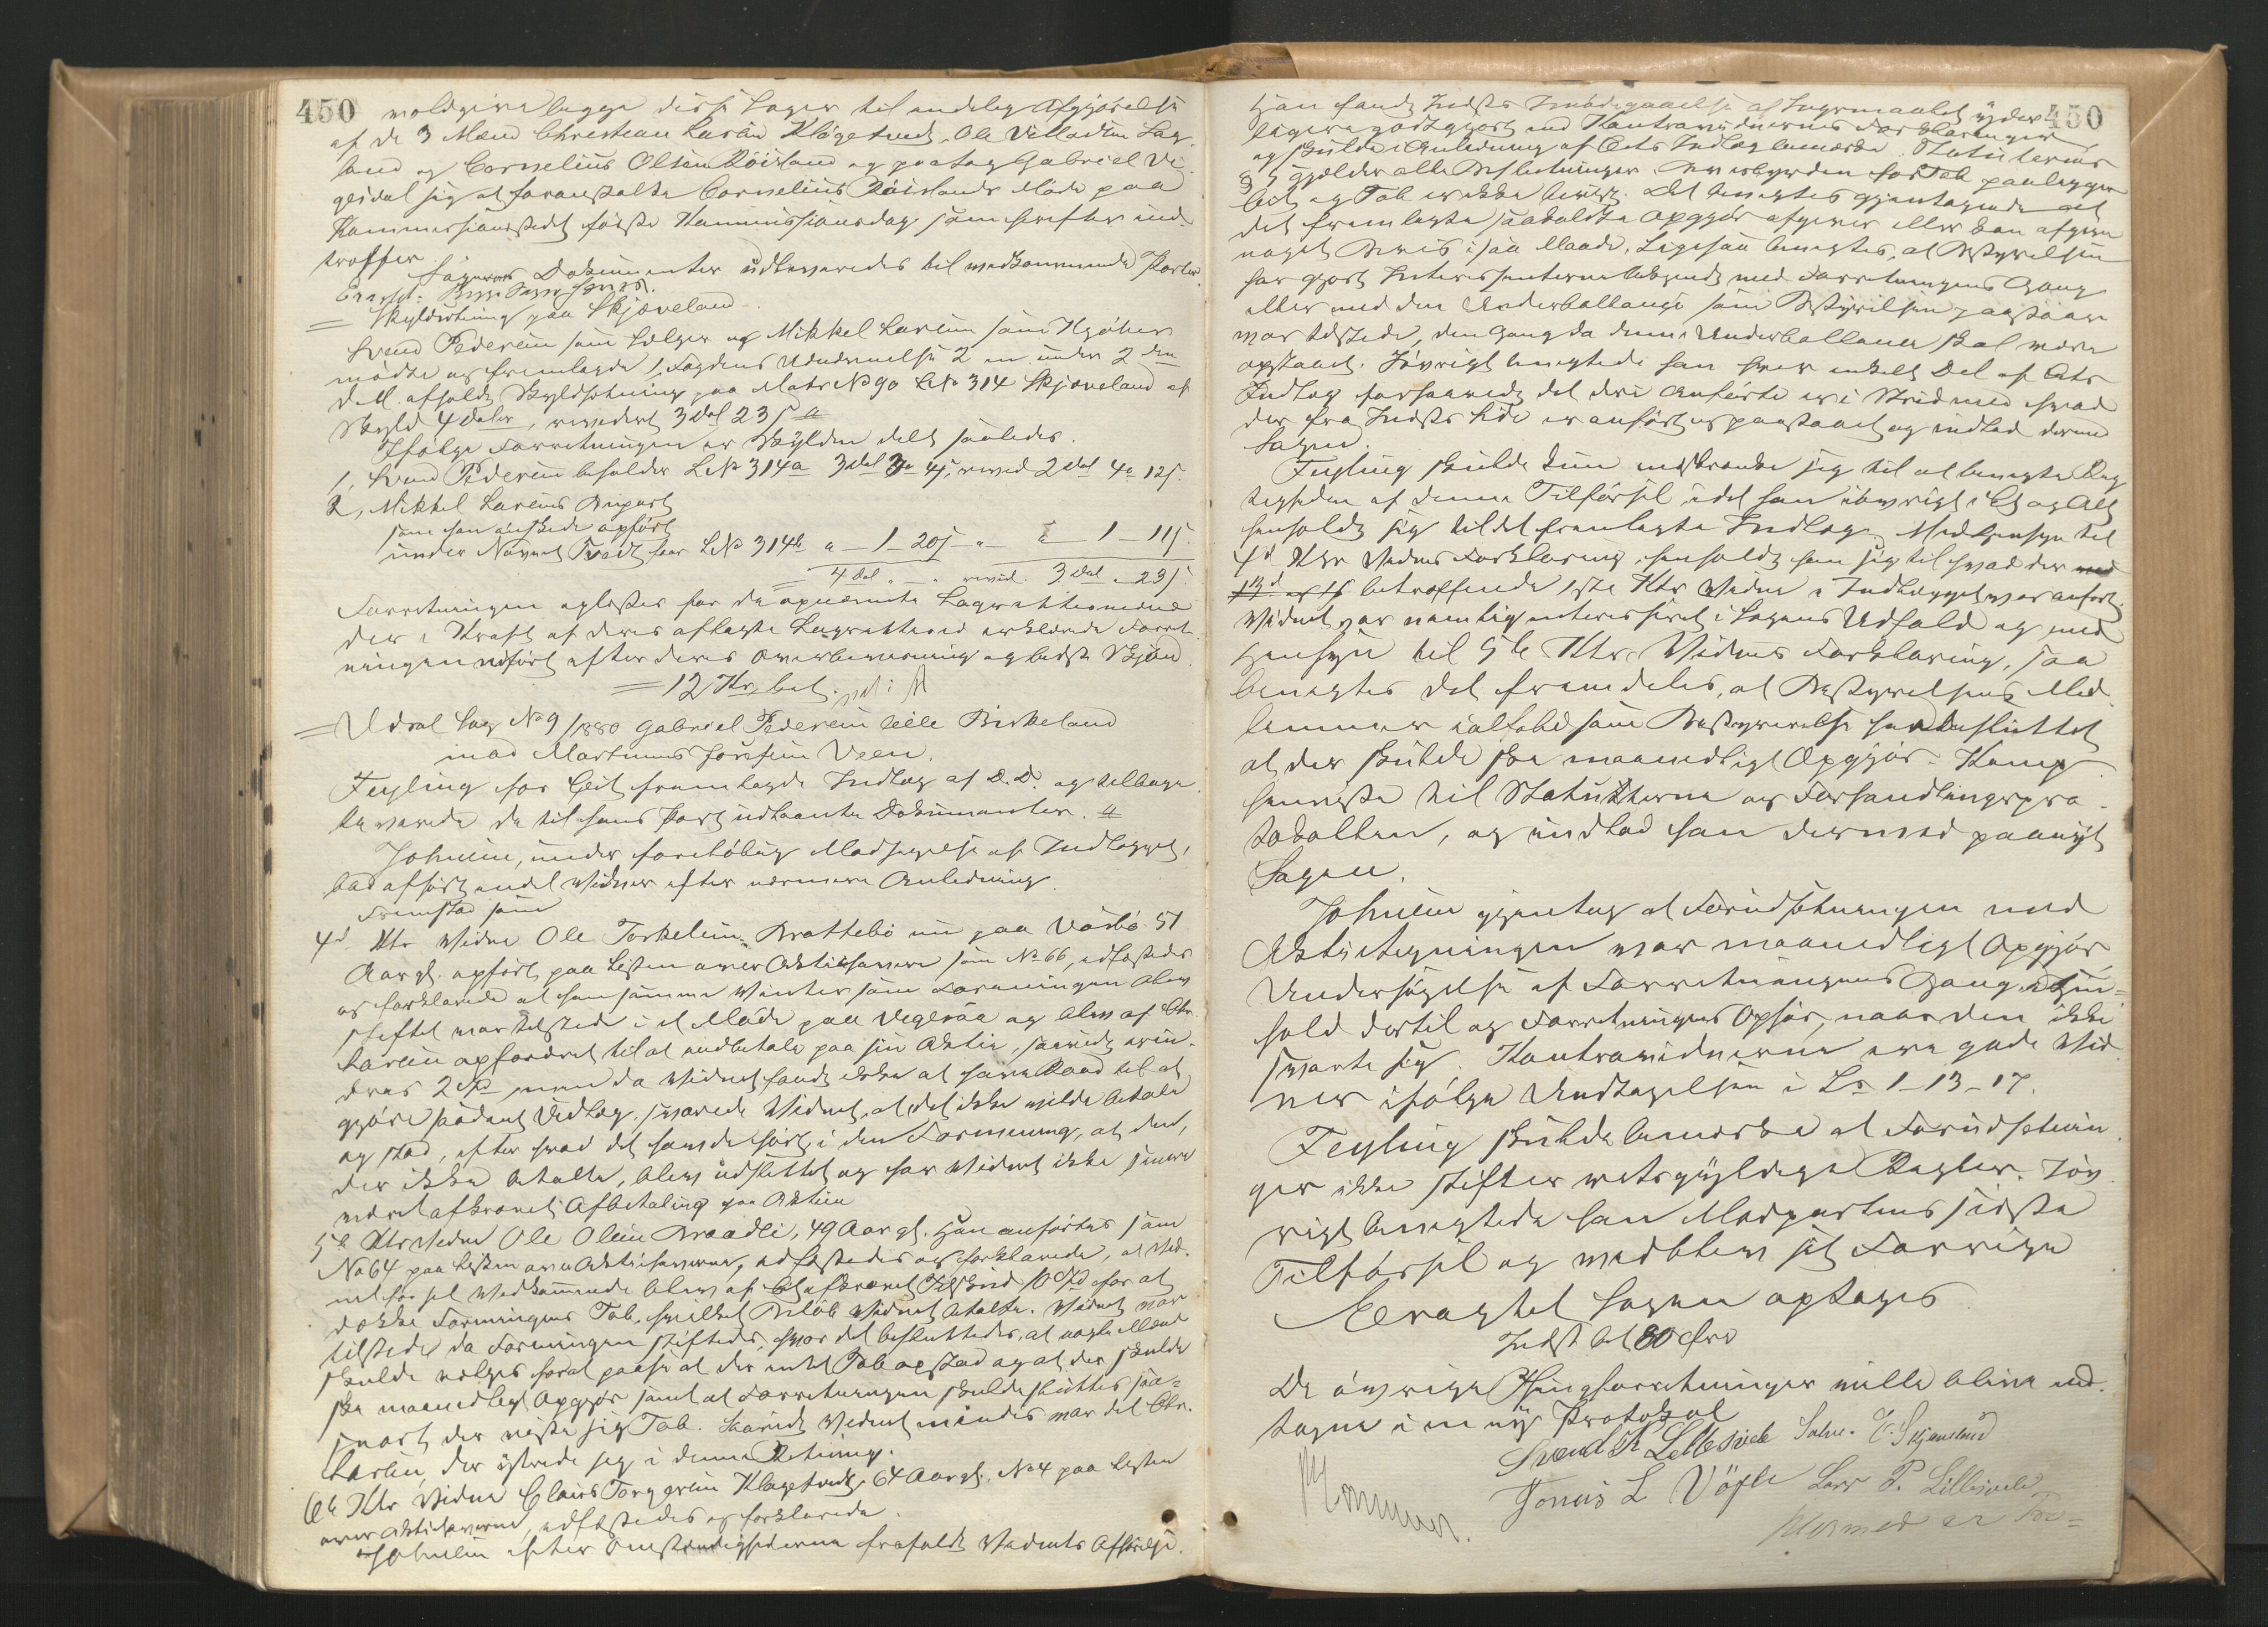 450
voldgive begge disse Sager til endelig Afgjørelse
af de 3 Mænd Christian Larsen Klågetvedt, Ole Villadsen Lag-
land og Cornelius Olsen Røisland og paatog Gabriel Vi-
gesdal sig at foranstalte Cornelius Røislands Møde paa
Kommissionsstedet første Kommissionsdag som herefter ind-
træffer.
Sagernes Dokumenter udleveredes til vedkommende Parter
Eragtet:
Skyldsætning paa Skjæveland
Svend Pedersen som Sælger og Mikkel Larsen som Kjøber
mødte og fremlagde 1, Fogdens Udnævnelse 2 en under 2den
d. M. afholdt Skyldsætning paa Matr No 90 L No 314 Skjæveland af
Skyld 4 Daler, revideret 3 Dal 23 s
Ifølge Forretningen er Skylden delt saaledes.
1, Svend Pedersen beholder L No 314a 3 Dal 3 o 4 s, revid 2 Dal 4 o 12 s.
2, Mikkel Larsens Anpart
som han ønskede opført
under Navnet Tvedt faar L No 314b " - 1 - 20 s - " 1 - 11 s.
4 Dal " - " revid. 3 Dal - 23 s.
Forretningen oplæstes for de opnævnte Lagrettesmænd
der i Kraft af deres aflagte Lagrettesed erklærede Forret-
ningen udført efter deres Overbevisning og bedste Skjøn.
= 12 Kr bet.
= Udsat Sag No 9/1880 Gabriel Pedersen Lille Birkeland
mod Martinus Josefsen Veen.
Feyling for Cit. fremlagde Indlæg af D. D. og tilbage-
leverede de til hans Part udlaante Dokumenter.
Johnsen, under foreløbig Modsigelse af Indlægget,
bad afhørt endel Vidner efter nærmere Anledning.
Fremstod som
4d. Ktr Vidne Ole Torkelsen Brattebø nu paa Vårbø 51
Aar gl. opført paa Listen over Aktiehavere som No 66, edfæstedes
og forklarede at han samme Vinter som Foreningen blev
stiftet var tilstede i et Møde paa Vegeraa og blev af Chr.
Larsen opfordret til at indbetale paa sin Aktie, saavidt erin-
dres 2 Spd men da Vidnet fandt ikke at have Raad til at
gjøre saadant Udlæg, svarede Vidnet, at det ikke vilde betale
og stod, efter hvad det havde hørt, i den Formening, at den,
der ikke betalte, blev udslettet og har Vidnet ikke senere
været afkrævet Afbetaling paa Aktien
5te Ktr Vidne Ole Olsen Braadli, 49 Aar gl. Han anførtes som
No 64 paa Listen over Aktiehaverne, edfæstedes og forklarede, at Vid-
net for sit Vedkommende blev af Cit. afkrævet Tilskud 10 Spd for at
dække Foreningens Tab, hvilket Beløb Vidnet betalte. Vidnet var
tilstede da Foreningen stiftedes, hvor det besluttedes, at nogle Mænd
skulde vælges for at paase at der intet Tab opstod og at der skulde
ske maanedligt Opgjør samt at Forretningen skulde sluttes saa-
snart der viste sig Tab. Saavidt Vidnet mindes var det Chr.
Larsen, der ytrede sig i denne Retning.
6te Ktr Vidne Claus Torgersen Klagetvedt, 64 Aar gl., No 4 paa Listen
over Aktiehaverne, edfæstedes og forklarede.
Johnsen efter Omstændighederne frafaldt Vidnets Afhørelse.
450
Han fandt Indst. Imødegaaelse af Sagsmaalet yder-
ligere godtgjort ved Kontravidnernes Forklaringer
og skulde i Anledning af Cits Indlæg bemærke. Statuternes
§ 5 gjælder alle Beslutninger. Bevisbyrden for Tab paaligger
Cit. og Tab er ikke bevist. Det benegtes gjentagende at
det fremlagte saakaldte Opgjør afgiver eller kan afgive
noget Bevis i saa Maade. Ligesaa benegtes, at Bestyrelsen
har gjort Interessenterne bekjendt med Forretningens Gang
eller med den Underballance som Bestyrelsen paastaar
var tilstede, den Gang da denne Underballance skal være
opstaaet. Iøvrigt benegtede han hver enkelt Del af Cits
Indlæg forsaavidt det deri Anførte er i Strid med hvad
der fra Indst. Side er anført og paastaaet og indlod dermed
Sagen.
Feyling skulde kun indskrænke sig til at benegte Rig-
tigheden af denne Tilførsel idet han iøvrigt i Et og Alt
henholdt sig til det fremlagte Indlæg. Med Hensyn til
4d Ktr Vidnes Forklaring, henholdt han sig til hvad der
betræffende 1ste Ktr Vidne i Indlægget var anført.
Vidnet var nemlig interesseret i Sagens Udfald og med
Hensyn til 5te Ktr Vidnes Forklaring, saa
benegtes det fremdeles, at Bestyrelsens Med-
lemmer ialfald som Bestyrelse har besluttet
at der skulde ske maanedligt Opgjør. Han
henviste til Statutterne og Forhandlingspro-
tokollen, og indlod han dermed paanyt
Sagen.
Johnsen gjentog at Forudsætningen med
Aktietegningen var maanedligt Opgjør,
Undersøgelse af Forretningens Gang i Hen-
hold dertil og Forretningens Ophør, naar den ikke
svarte sig. Kontravidnerne ere gode Vid-
ner ifølge Undtagelsen i L. 1-13-17.
Feyling skulde bemærke at Forudsætnin-
ger ikke stifter retsgyldige Regler. Iøv-
rigt benegtede han Modpartens sidste
Tilførsel og vedblev sit Forrige
Eragtet Sagen optages
Indst bet 80 Øre
De øvrige Thingforretninger ville blive ind-
tagne i en ny Protokol
Svend K Lillesvele Salve. E. Skjæveland
Jonas L Vögle Lars P. Lillesvele
Hermed er Pro=